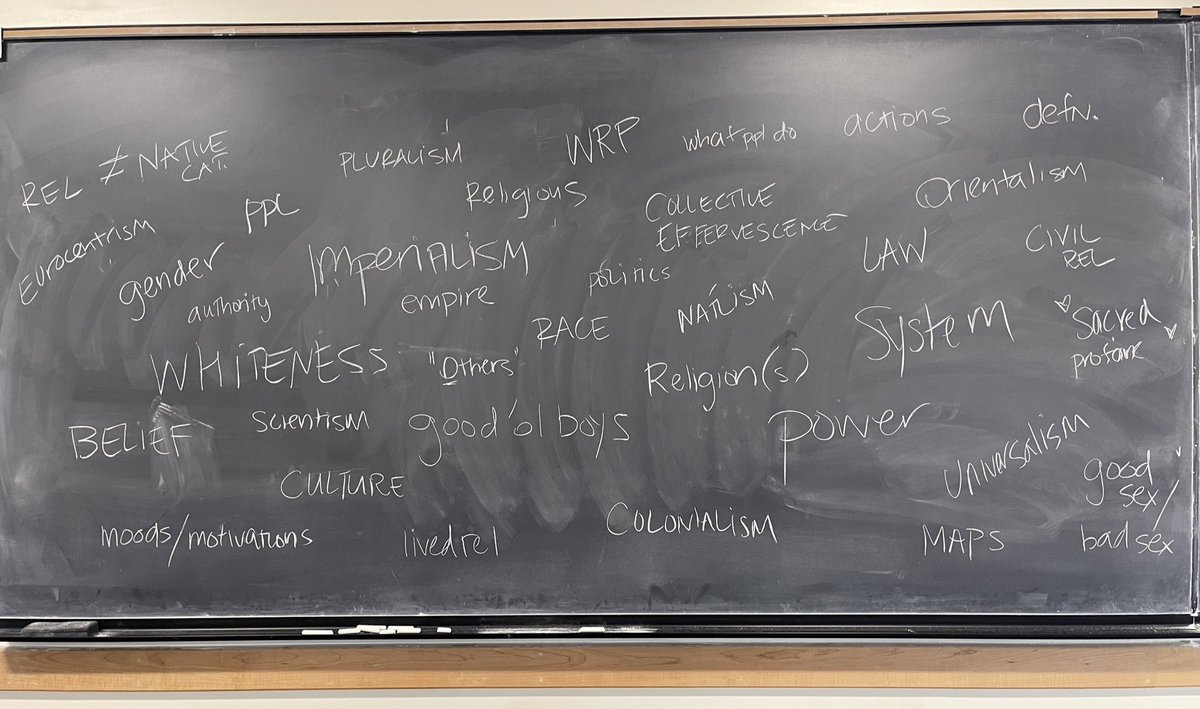 REL ≠ NATIVE
CAT.
PLURALISM
WRP
what ppl do
actions
defn.
Eurocentrism
ppl
Religious
COLLECTIVE
EFFERVESCENCE
Orientalism
gender
authority
IMPERIALISM
empire
politics
LAW
CIVIL
REL
RACE
NATLISM
System
Sacred
profane
WHITENESS
"Others"
Religion(s)
BELIEF
Scientism
good 'ol boys
power
Universalism
good
sex/
bad sex
CULTURE
moods/motivations
lived rel
COLONIALISM
MAPS